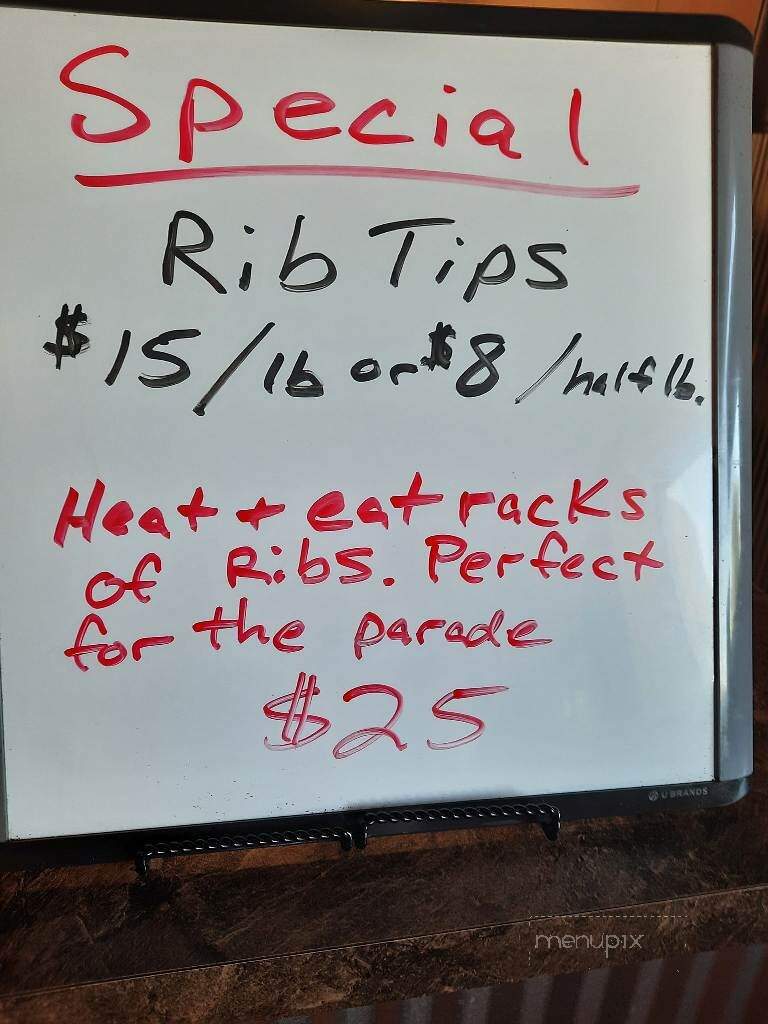 Special
Rib Tips
$15/lb or $8/half lb.
Heat + eat racks
of Ribs. Perfect
for the parade
$25
U BRANDS
menupix